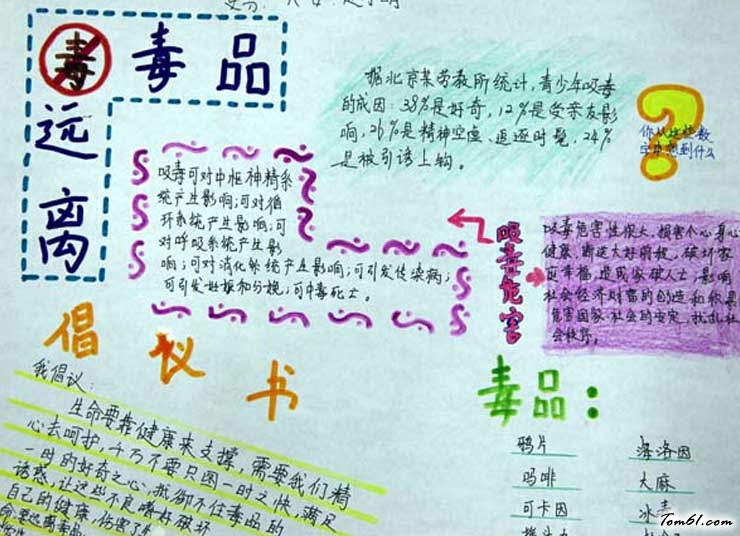 毒 毒品
远离
据北京某劳教所统计,青少年吸毒
的成因:38%是好奇,12%是受亲友影
响,26%是精神空虚、追逐时髦,24%
是被引诱上钩。
?
你从这些数
字中想到什么
吸毒可对中枢神精系
统产生影响;可对循
环系统产生影响;可
对呼吸系统产生影
响;可对消化系统产生影响;可引发传染病;
可引发妊娠和分娩;可中毒死亡。
吸毒危害
吸毒危害性很大,损害个心身心
健康,断送大好前程,破坏家
庭幸福,造成家破人亡,影响
社会经济财富的创造和积累
危害国家社会的安定,扰乱社
会秩序。
倡议书
我倡议:
生命要靠健康来支撑,需要我们精
心去呵护,千万不要只图一时之快,满足
一时的好奇之心,抵御不住毒品的
诱惑,让这些不良嗜好破坏
自己的健康,伤害了
毒品:
鸦片 海洛因
吗啡 大麻
可卡因 冰毒
Tom61.com